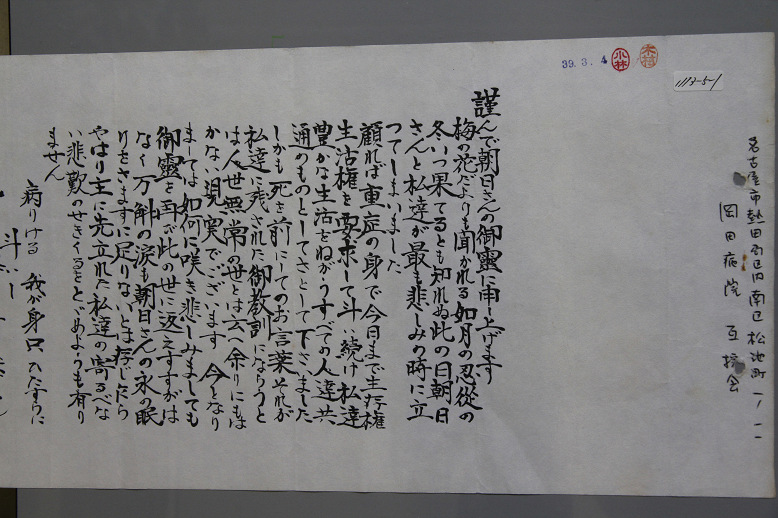 名古屋市熱田区内南区松池町一ノ一一
岡田病院 互援会
39.3.4
小林
木村
1117-5-1
謹んで朝日さんの御霊に申上げます
梅の花だよりも聞かれる如月の忍従の
冬いつ果てるとも知れぬ此の日朝日
さんと私達が最も悲しみの時に立
つてしまいました
顧れば重症の身で今日まで生存権
生活権を要求して斗い続け私達
豊かな生活をねがうすべての人達共
通のものとしてさとして下さいました
しかも死を前にしてのお言葉それが
私達に残された御教訓にならうと
は人世無常の世とは云へ余りにもは
かない現実でございます 今となり
ましては如何に咲き悲しみましても
御霊を再び此の世に返えすすがは
なく万斛の涙も朝日さんの永の眠
りをさますに足りないとは存じながら
やはり主に先立れた私達の寄るべな
い悲歎のせきくるをとどめようも有り
ません
病りける 我が身只ひたすらに
斗い